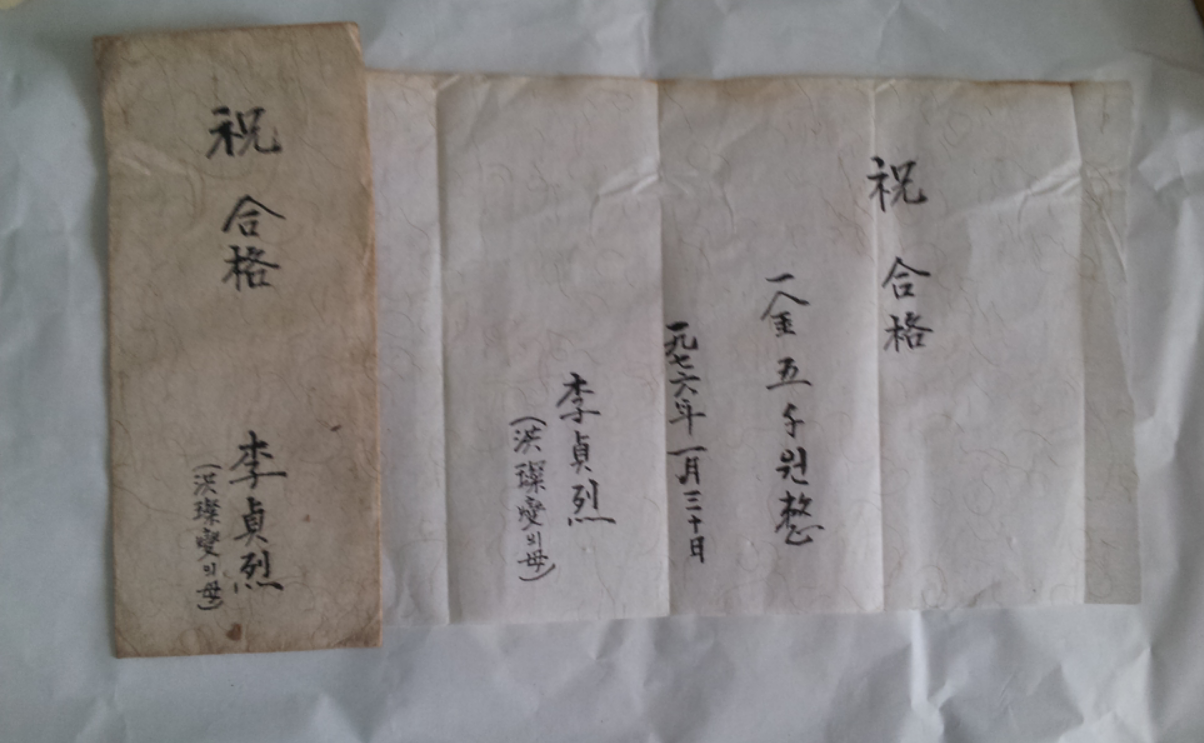 祝 合格
李貞烈
(洪璨燮의母)
祝 合格
一金五千원整
一九七六年 一月三十日
李貞烈
(洪璨燮의母)